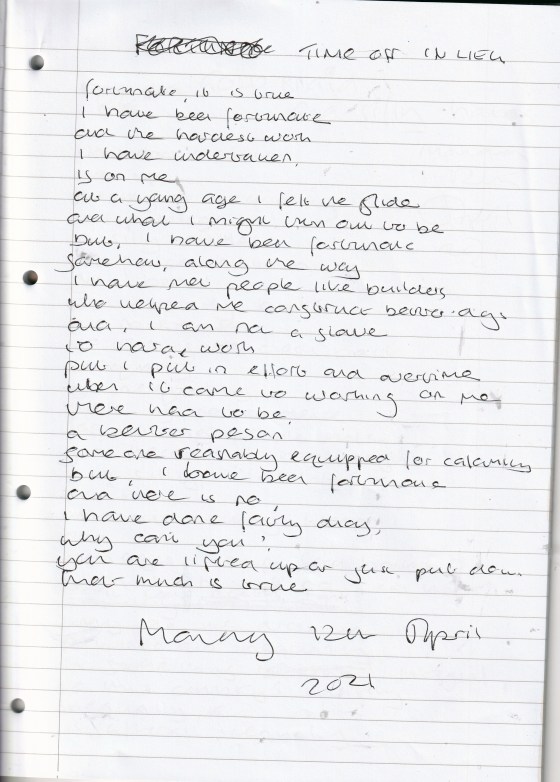 TIME OFF IN LIEU
fortunate, it is true
I have been fortunate
and the hardest work
I have undertaken,
is on me
at a young age I felt the glide
and what I might turn out to be
but, I have been fortunate
somehow, along the way
I have met people like builders
who helped me construct better days
and, I am not a slave
to hard work
but I put in effort and overtime
when it came to working on me
there had to be,
a better person
someone reasonably equipped for calamity
but, I have been fortunate
and there is no,
I have done fairly okay,
why can't you?
you are lifted up or just put down
that much is true
Monday 12th April
2021